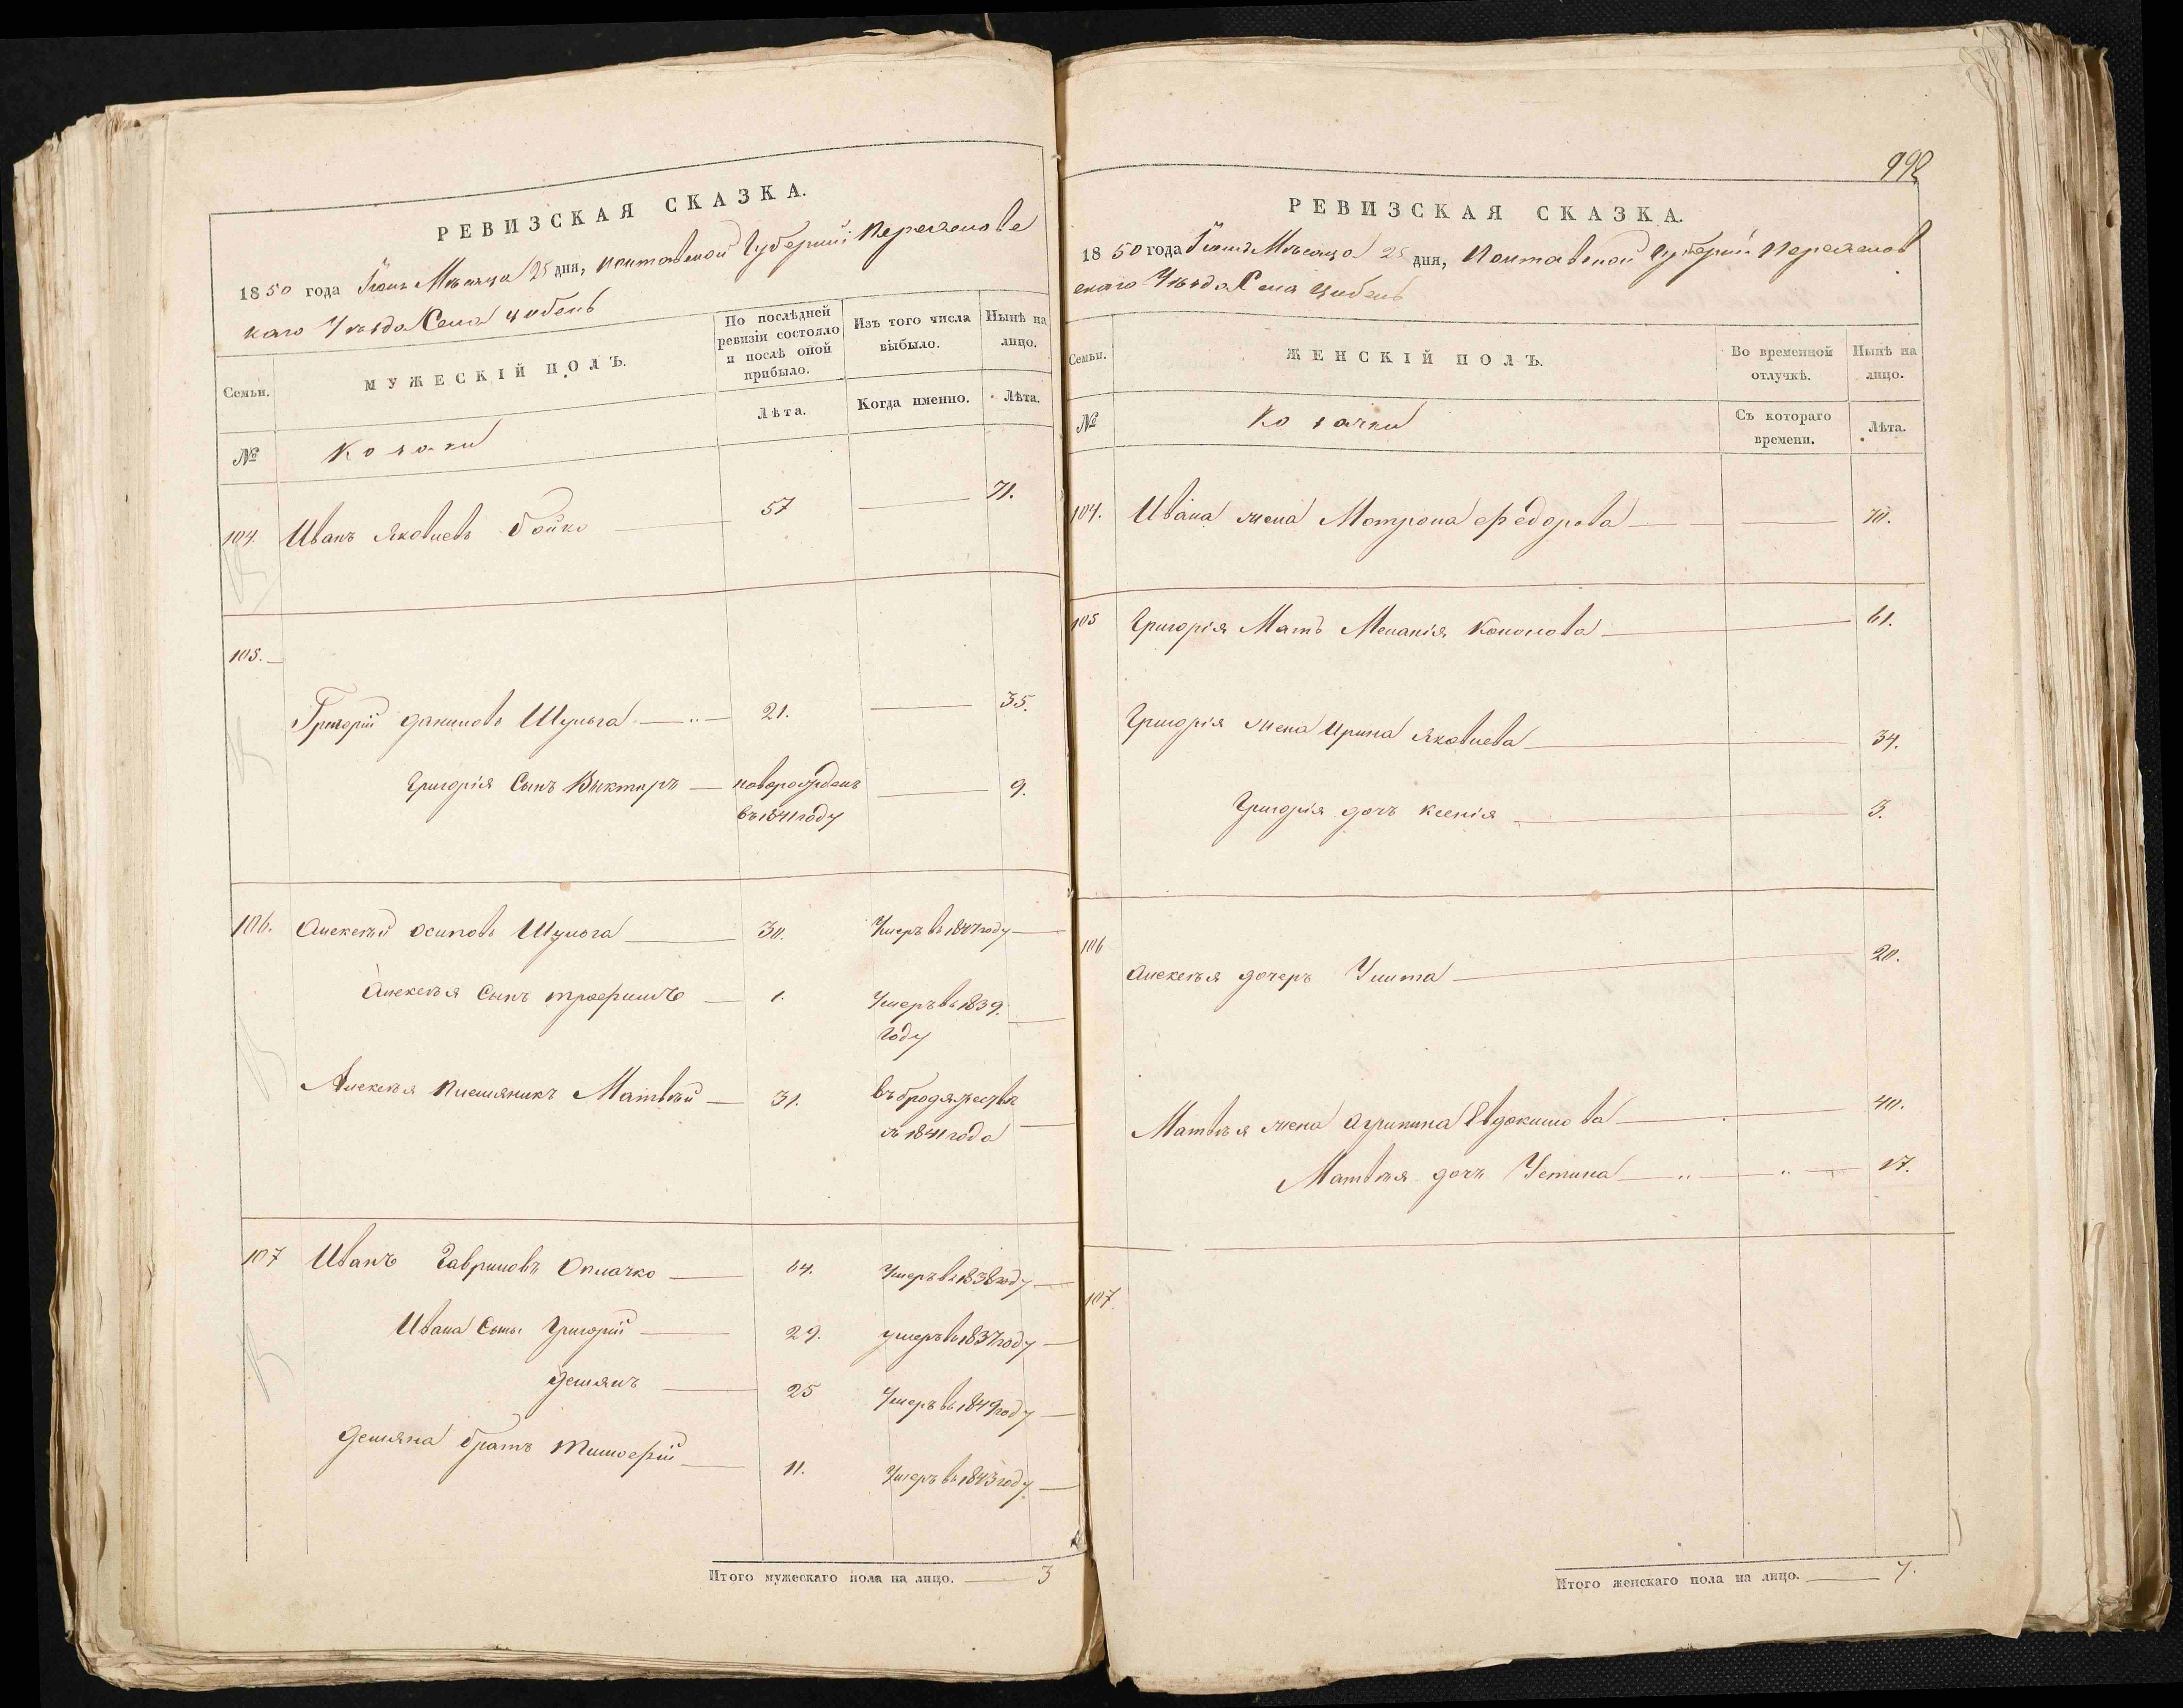 РЕВИЗСКАЯ СКАЗКА.
1850 года Iюнь Мѣсяца 25 дня, Полтавской Губернiи Переяслове
каго Уѣзда Села Цибель
Семьи.
МУЖЕСКIЙ ПОЛЪ.
По послѣдней
ревизiи состояло
и послѣ оной
прибыло.
Изъ того числа
выбыло.
Нынѣ на
лицо.
Лѣта.
Когда именно.
Лѣта.
№
Козаки
104. Иванъ Яковлевъ Бойко 57 71.
105.
Григорiй Данилов Шульга 21. 35.
Григорiя Сынъ Викторъ новорожденъ 9.
въ 1841 году
106. Алексѣй Осиповъ Шульга 30. Умеръ въ 1847 году
Алексѣя Сынъ Трофимъ 1. Умеръ въ 1839.
году
Алексѣя Племяникъ Матвѣй 31. въ бродяжествѣ
съ 1841 года
107 Иванъ Гавриловъ Оплачко 64. Умеръ въ 1838 году
Ивана Сыны Григорiй 29. умеръ въ 1837 году
Демянъ 25 Умеръ въ 1849 году
Демяна братъ Тимофiй 11. Умеръ въ 1843 году
Итого мужескаго пола на лицо. 3
998
РЕВИЗСКАЯ СКАЗКА.
1850 года Iюнь Мѣсяца 25 дня, Полтавской Губернiи Переяслов
скаго Уѣзда Села Цибель
Семьи.
ЖЕНСКIЙ ПОЛЪ.
Во временной
отлучкѣ.
Нынѣ на
лицо.
№
Козачки
Съ котораго
времени.
Лѣта.
104. Ивана жена Мотрона Федорова 70.
105 Григорiя Мать Меланiя Кононова 61.
Григорiя жена Ирина Яковлева 34.
Григорiя дочь Ксенiя 3.
106
Алексѣя дочерь Улита 20.
Матвѣя жена Агрипина Евдокимова 40.
Матвѣя дочь Устина 17.
107.
Итого женскаго пола на лицо. 7.